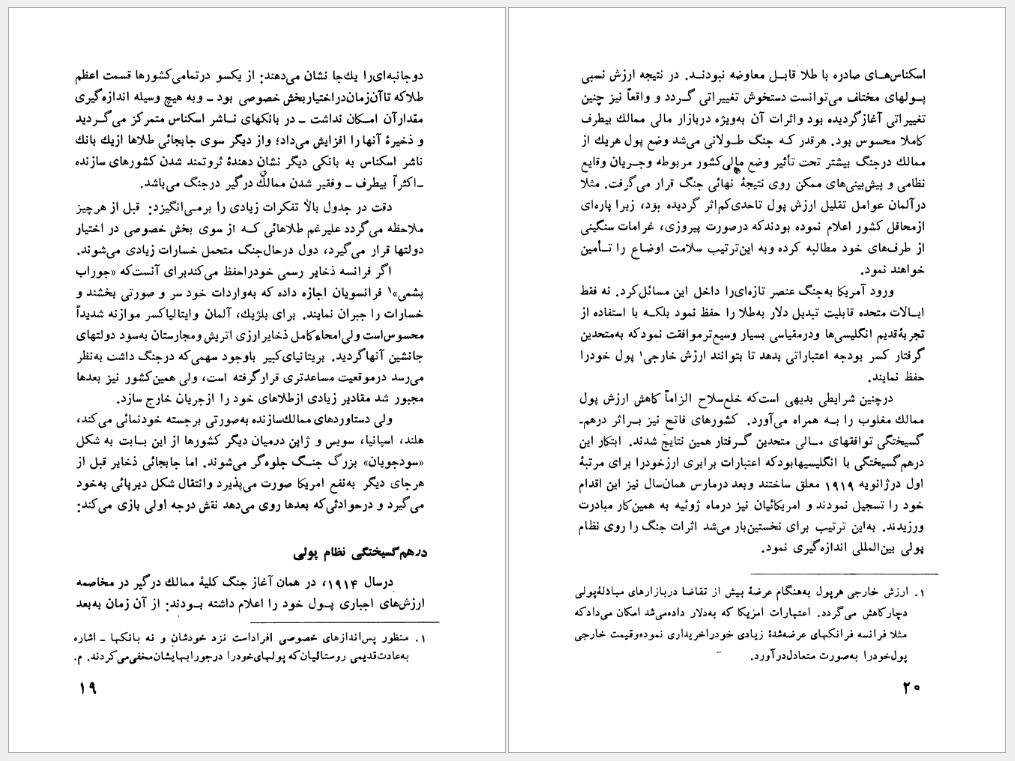 دوجانبه‌ای‌را یك‌جا نشان می‌دهند: از یكسو درتمامی‌كشورها قسمت اعظم
طلاكه تاآن‌زمان‌دراختیاربخش خصوصی بود ــ وبه هیچ وسیله اندازه‌گیری
مقدارآن امكان نداشت ــ در بانكهای ناشر اسكناس متمركز می‌گردید
و ذخیرهٔ آنها را افزایش می‌داد؛ واز دیگر سوی جابجائی طلاها ازیك بانك
ناشر اسكناس به بانكی دیگر نشان دهندهٔ ثروتمند شدن كشورهای سازنده
ــ اكثراً بیطرف ــ وفقیر شدن ممالك درگیر درجنگ می‌باشد.
دقت در جدول بالا تفكرات زیادی را برمی‌انگیزد: قبل از هرچیز
ملاحظه می‌گردد علیرغم طلاهائی كه از سوی بخش خصوصی در اختیار
دولتها قرار می‌گیرد، دول درحال‌جنگ متحمل خسارات زیادی می‌شوند.
اگر فرانسه ذخایر رسمی خودراحفظ می‌كندبرای آنست‌كه «جوراب
پشمی»۱ فرانسویان اجازه داده كه به‌واردات خود سر و صورتی بخشند و
خسارات را جبران نمایند. برای بلژیك، آلمان وایتالیاكسر موازنه شدیداً
محسوس‌است ولی‌امحاءكامل ذخایرارزی اتریش ومجارستان به‌سود دولتهای
جانشین آنهاگردید. بریتانیای‌كبیر باوجود سهمی‌كه درجنگ داشت به‌نظر
می‌رسد درموقعیت مساعدتری قرارگرفته است، ولی همین‌كشور نیز بعدها
مجبور شد مقادیر زیادی ازطلاهای خود را ازجریان خارج سازد.
ولی دستاوردهای ممالك‌سازنده به‌صورتی برجسته خودنمائی می‌كند،
هلند، اسپانیا، سویس و ژاپن درمیان دیگر كشورها از این بابت به شكل
«سودجویان» بزرگ جنگ جلوه‌گر می‌شوند. اما جابجائی ذخایر قبل از
هرجای دیگر به‌نفع امریكا صورت می‌پذیرد وانتقال شكل دیرپائی به‌خود
می‌گیرد و درحوادثی‌كه بعدها روی می‌دهد نقش درجه اولی بازی می‌كند:
درهم‌گسیختگی نظام پولی
درسال ۱۹۱۴، در همان آغاز جنگ كلیهٔ ممالك درگیر در مخاصمه
ارزش‌های اجباری پول خود را اعلام داشته بودند: از آن زمان به‌بعد
۱. منظور پس‌اندازهای خصوصی افراداست نزد خودشان و نه بانكها ــ اشاره
به‌عادت‌قدیمی روستائیان‌كه پولهای‌خودرا درجورابهایشان‌مخفی‌می‌كردند. م.
۱۹
اسكناس‌های صادره با طلا قابل معاوضه نبودند. در نتیجه ارزش نسبی
پولهای مختلف می‌توانست دستخوش تغییراتی گردد و واقعاً نیز چنین
تغییراتی آغازگردیده بود واثرات آن به‌ویژه دربازار مالی ممالك بیطرف
كاملا محسوس بود. هرقدر كه جنگ طولانی می‌شد وضع پول هریك از
ممالك درجنگ بیشتر تحت تأثیر وضع مالی‌كشور مربوطه وجریان وقایع
نظامی و پیش‌بینی‌های ممكن روی نتیجهٔ نهائی جنگ قرار می‌گرفت. مثلا
درآلمان عوامل تقلیل ارزش پول تاحدی‌كم‌اثر گردیده بود، زیرا پاره‌ای
ازمحافل كشور اعلام نموده بودندكه درصورت پیروزی، غرامات سنگینی
از طرف‌های خود مطالبه كرده وبه این‌ترتیب سلامت اوضاع را تأمین
خواهند نمود.
ورود آمریكا به‌جنگ عنصر تازه‌ای‌را داخل این مسائل‌كرد. نه فقط
ایالات متحده قابلیت تبدیل دلار به‌طلا را حفظ نمود بلكه با استفاده از
تجربهٔ‌قدیم انگلیسی‌ها ودرمقیاسی بسیار وسیع‌ترموافقت نمودكه به‌متحدین
گرفتار كسر بودجه اعتباراتی بدهد تا بتوانند ارزش خارجی۱ پول خودرا
حفظ نمایند.
درچنین شرایطی بدیهی است‌كه خلع‌سلاح الزاماً كاهش ارزش پول
ممالك مغلوب را به همراه می‌آورد. كشورهای فاتح نیز براثر درهم‌ـ
گسیختگی توافقهای مالی متحدین گرفتار همین نتایج شدند. ابتكار این
درهم‌گسیختگی با انگلیسیهابودكه اعتبارات برابری ارزخودرا برای مرتبهٔ
اول درژانویه ۱۹۱۹ معلق ساختند وبعد درمارس همان‌سال نیز این اقدام
خود را تسجیل نمودند و امریكائیان نیز درماه ژوئیه به همین‌كار مبادرت
ورزیدند. به‌این ترتیب برای نخستین‌بار می‌شد اثرات جنگ را روی نظام
پولی بین‌المللی اندازه‌گیری نمود.
۱. ارزش خارجی هرپول به‌هنگام عرضهٔ بیش از تقاضا دربازارهای مبادلهٔ‌پولی
دچاركاهش می‌گردد. اعتبارات امریكا كه به‌دلار داده‌می‌شد امكان می‌دادكه
مثلا فرانسه فرانكهای عرضه‌شدهٔ زیادی خودراخریداری نموده‌وقیمت خارجی
پول‌خودرا به‌صورت متعادل‌درآورد.
۲۰